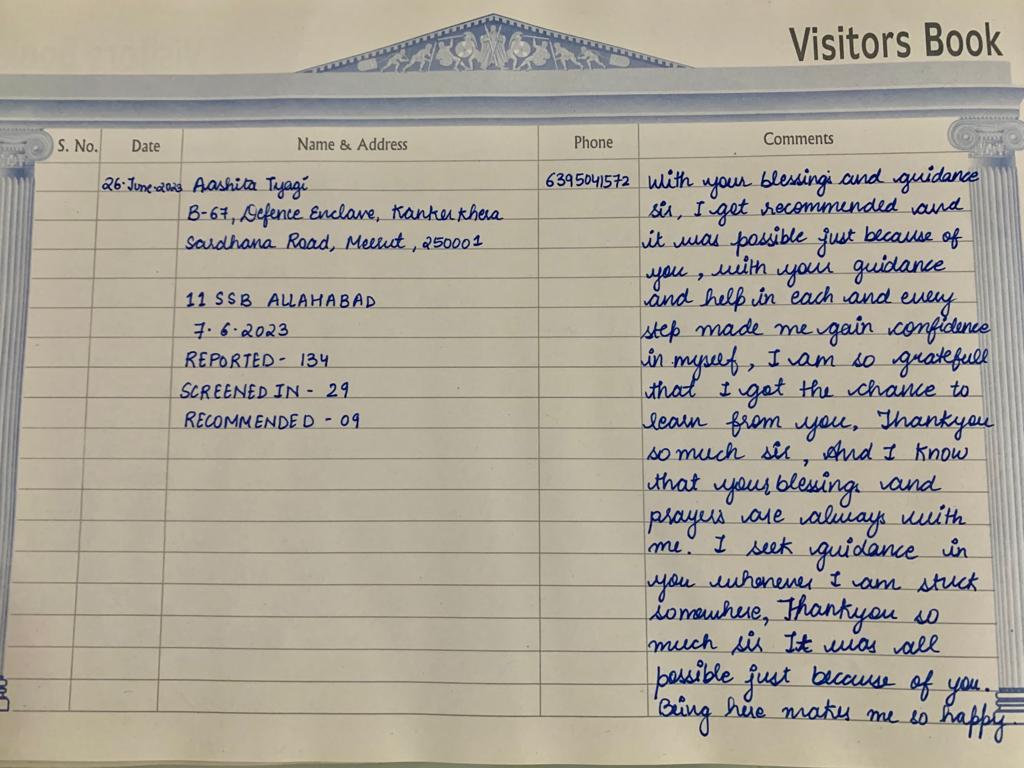 Visitors Book
S. No.
Date
Name & Address
Phone
Comments
26-June-2023
Aashita Tyagi
B-67, Defence Enclave, Kanker khera
Sardhana Road, Meerut, 250001
11 SSB ALLAHABAD
7.6.2023
REPORTED - 134
SCREENED IN - 29
RECOMMENDED - 09
6395041572
With your blessings and guidance
sir, I got recommended and
it was possible just because of
you, with your guidance
and help in each and every
step made me gain confidence
in myself, I am so gratefull
that I got the chance to
learn from you, Thankyou
so much sir, And I know
that your blessings and
prayers are always with
me. I seek guidance in
you whenever I am stuck
somewhere, Thankyou so
much sir It was all
possible just because of you.
Being here makes me so happy.